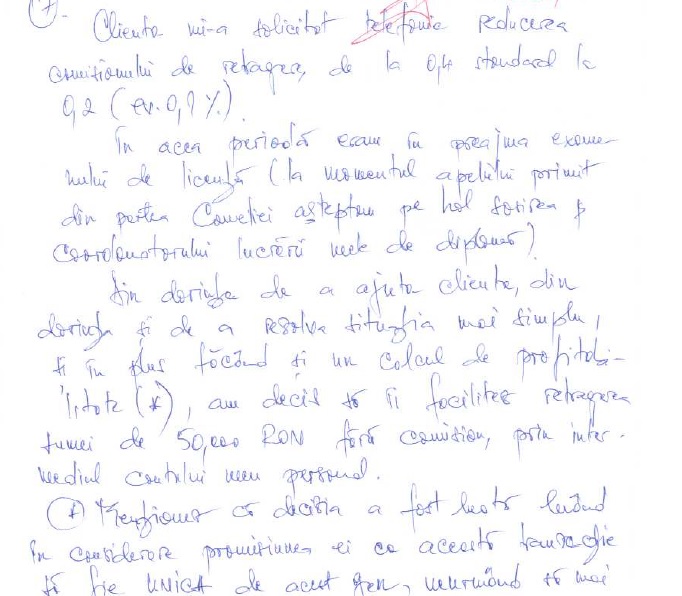 7.
Clienta mi-a solicitat telefonic reducerea
comisionului de retragere, de la 0,4 standard la
0,2 (ev. 0,1%).
În acea periodă eram în preajma exame-
nului de licență (la momentul apelului primit
din partea Cometiei așteptam pe hol sosirea
coordonatorului lucrării mele de diplomă)
Din dorința de a ajuta clienta, din
dorința și de a rezolva situația mai simplu,
și în plus făcând și un calcul de profitabi-
litate (*), am decis să îi facilitez retragerea
sumei de 50,000 RON fără comision, prin inter-
mediul contului meu personal.
(*) Menționez că decizia a fost luată luând
în considerare promisiunea ei ca această tranzacție
să fie UNICĂ de acest gen, urmând să mai